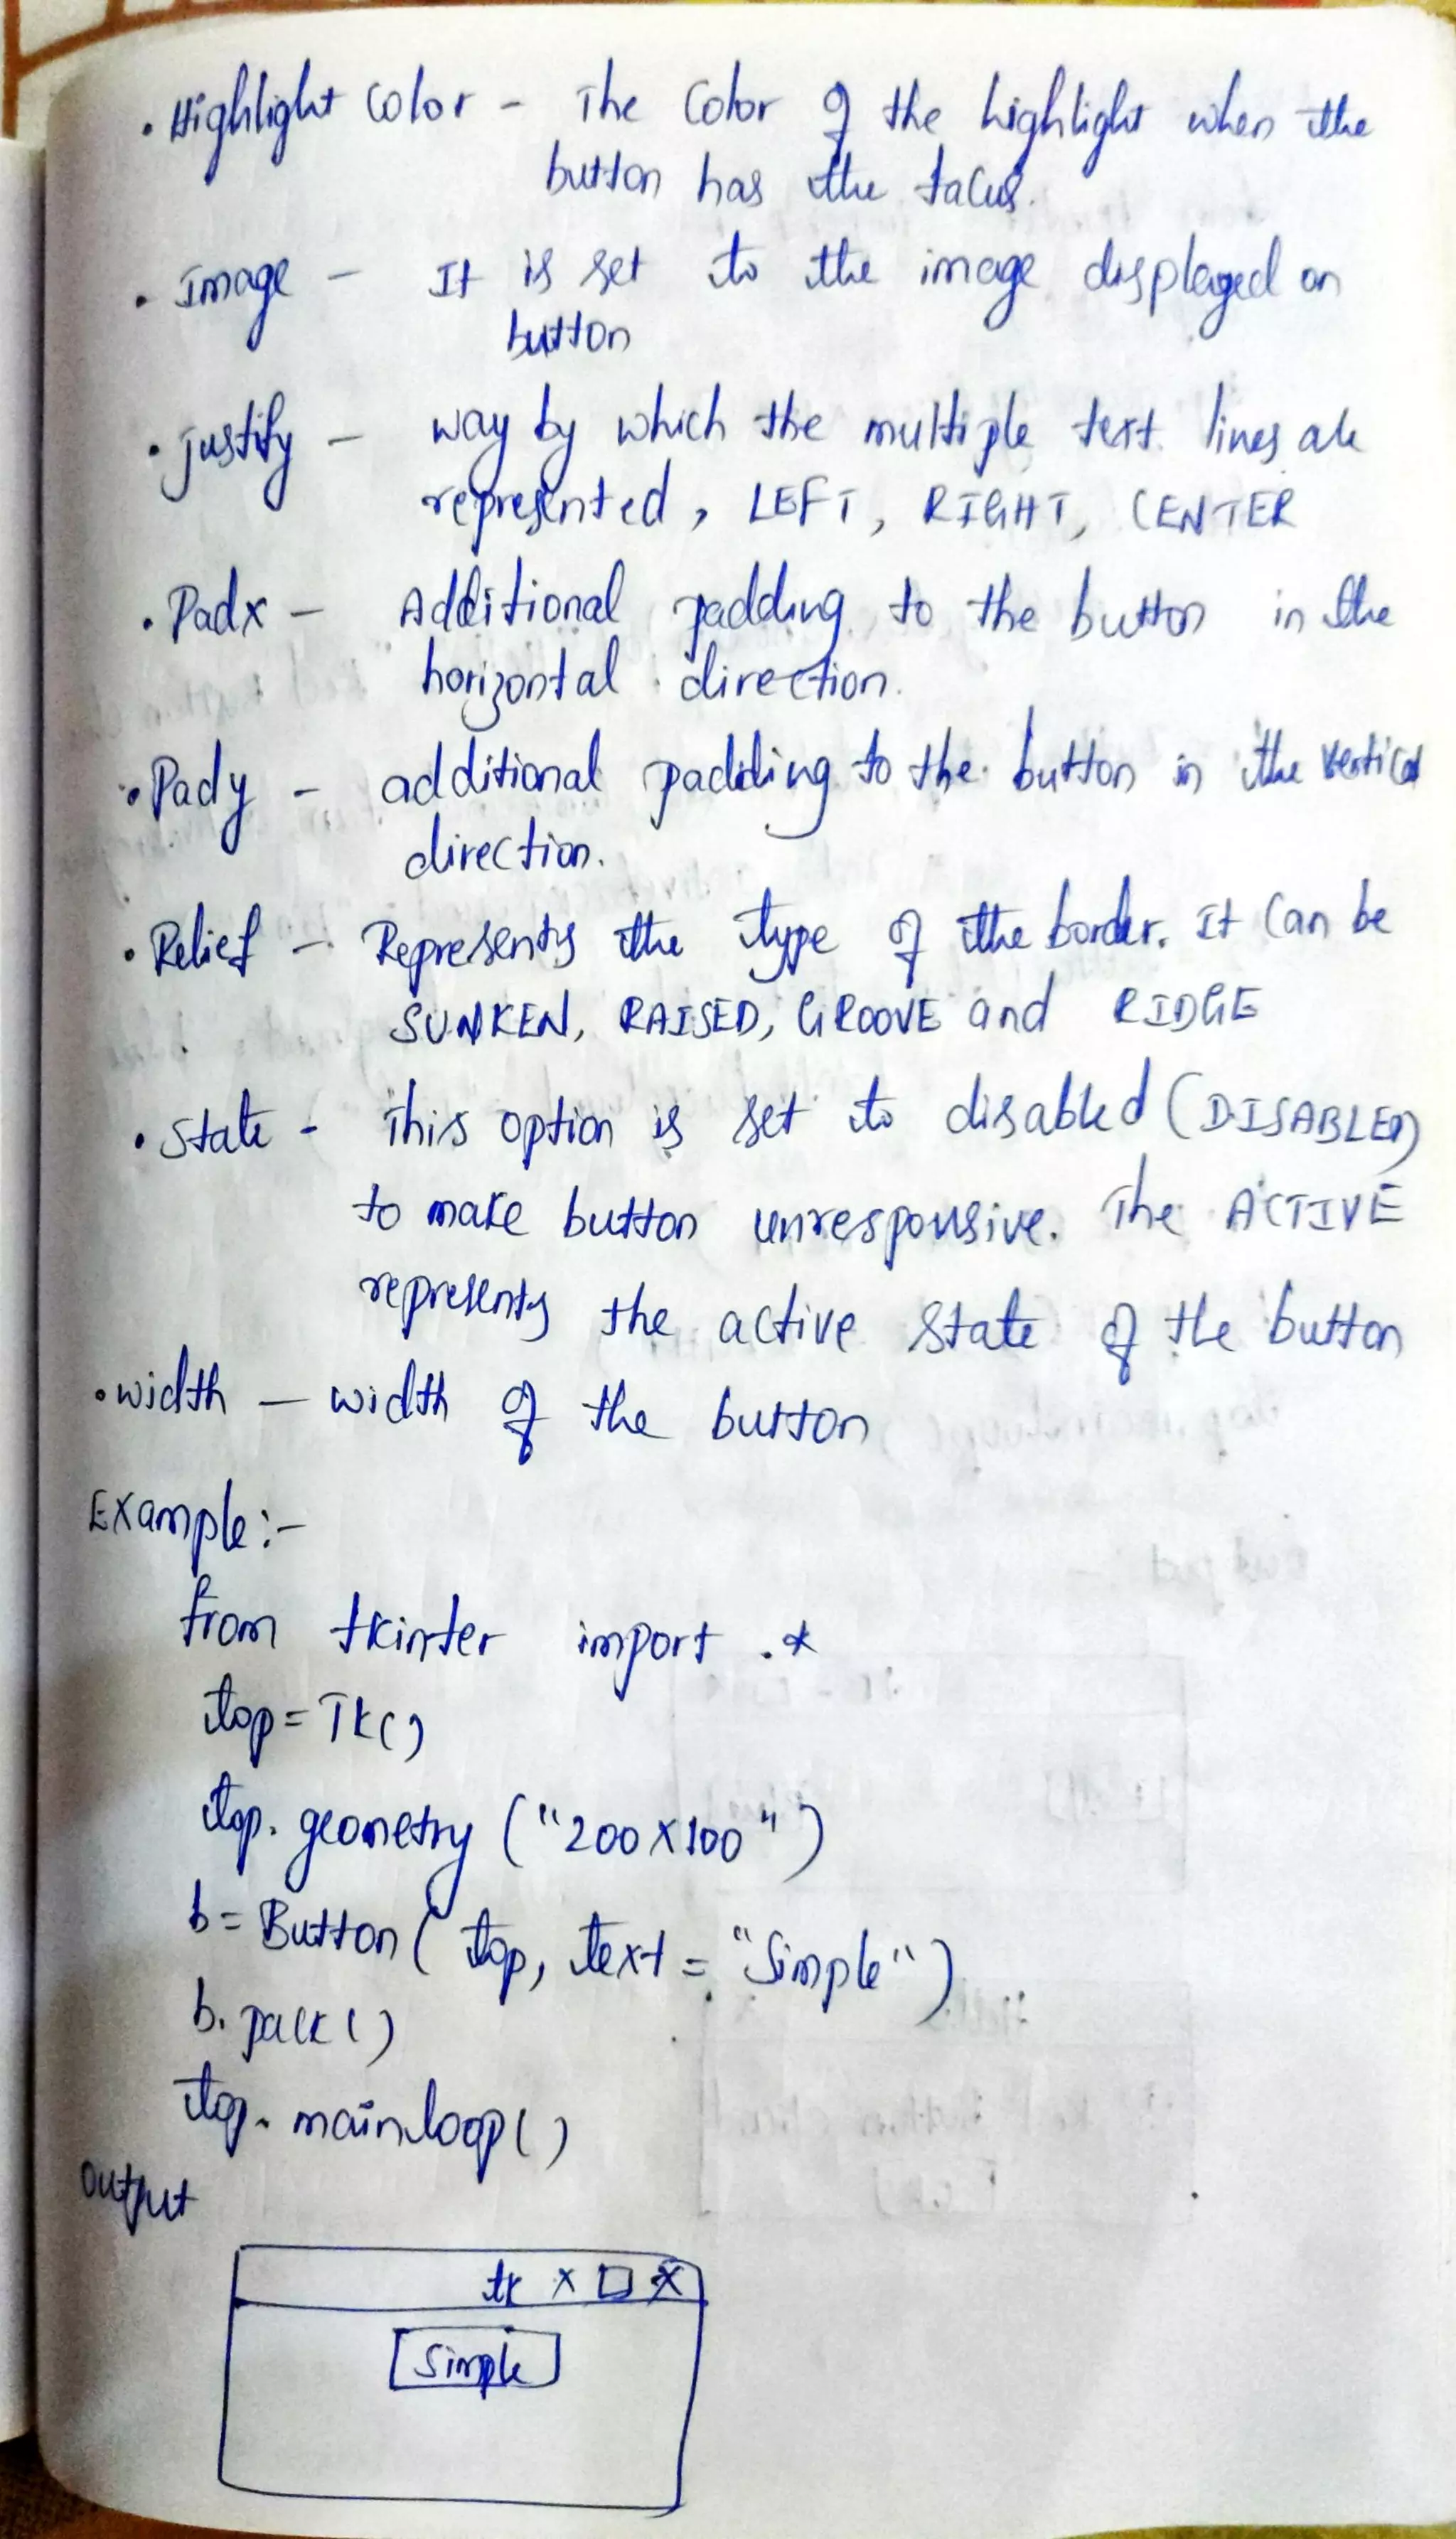 . Highlight color - The Color of the highlight when the
button has the focus.
. Image - It is set to the image displayed on
button
. justify - way by which the multiple text lines are
represented, LEFT, RIGHT, CENTER
. Padx - Additional padding to the button in the
horizontal direction.
. Pady - additional padding to the button in the vertical
direction.
. Relief - Represents the type of the border. It can be
SUNKEN, RAISED, GROOVE and RIDGE
. State - This option is set to disabled (DISABLED)
to make button unresponsive. The ACTIVE
represents the active state of the button
. width - width of the button
Example:-
from tkinter import .*
top = Tk()
top. geometry ("200X100")
b = Button ( top, text = "Simple")
b. pack()
top. mainloop()
output
tk X □ X
Simple